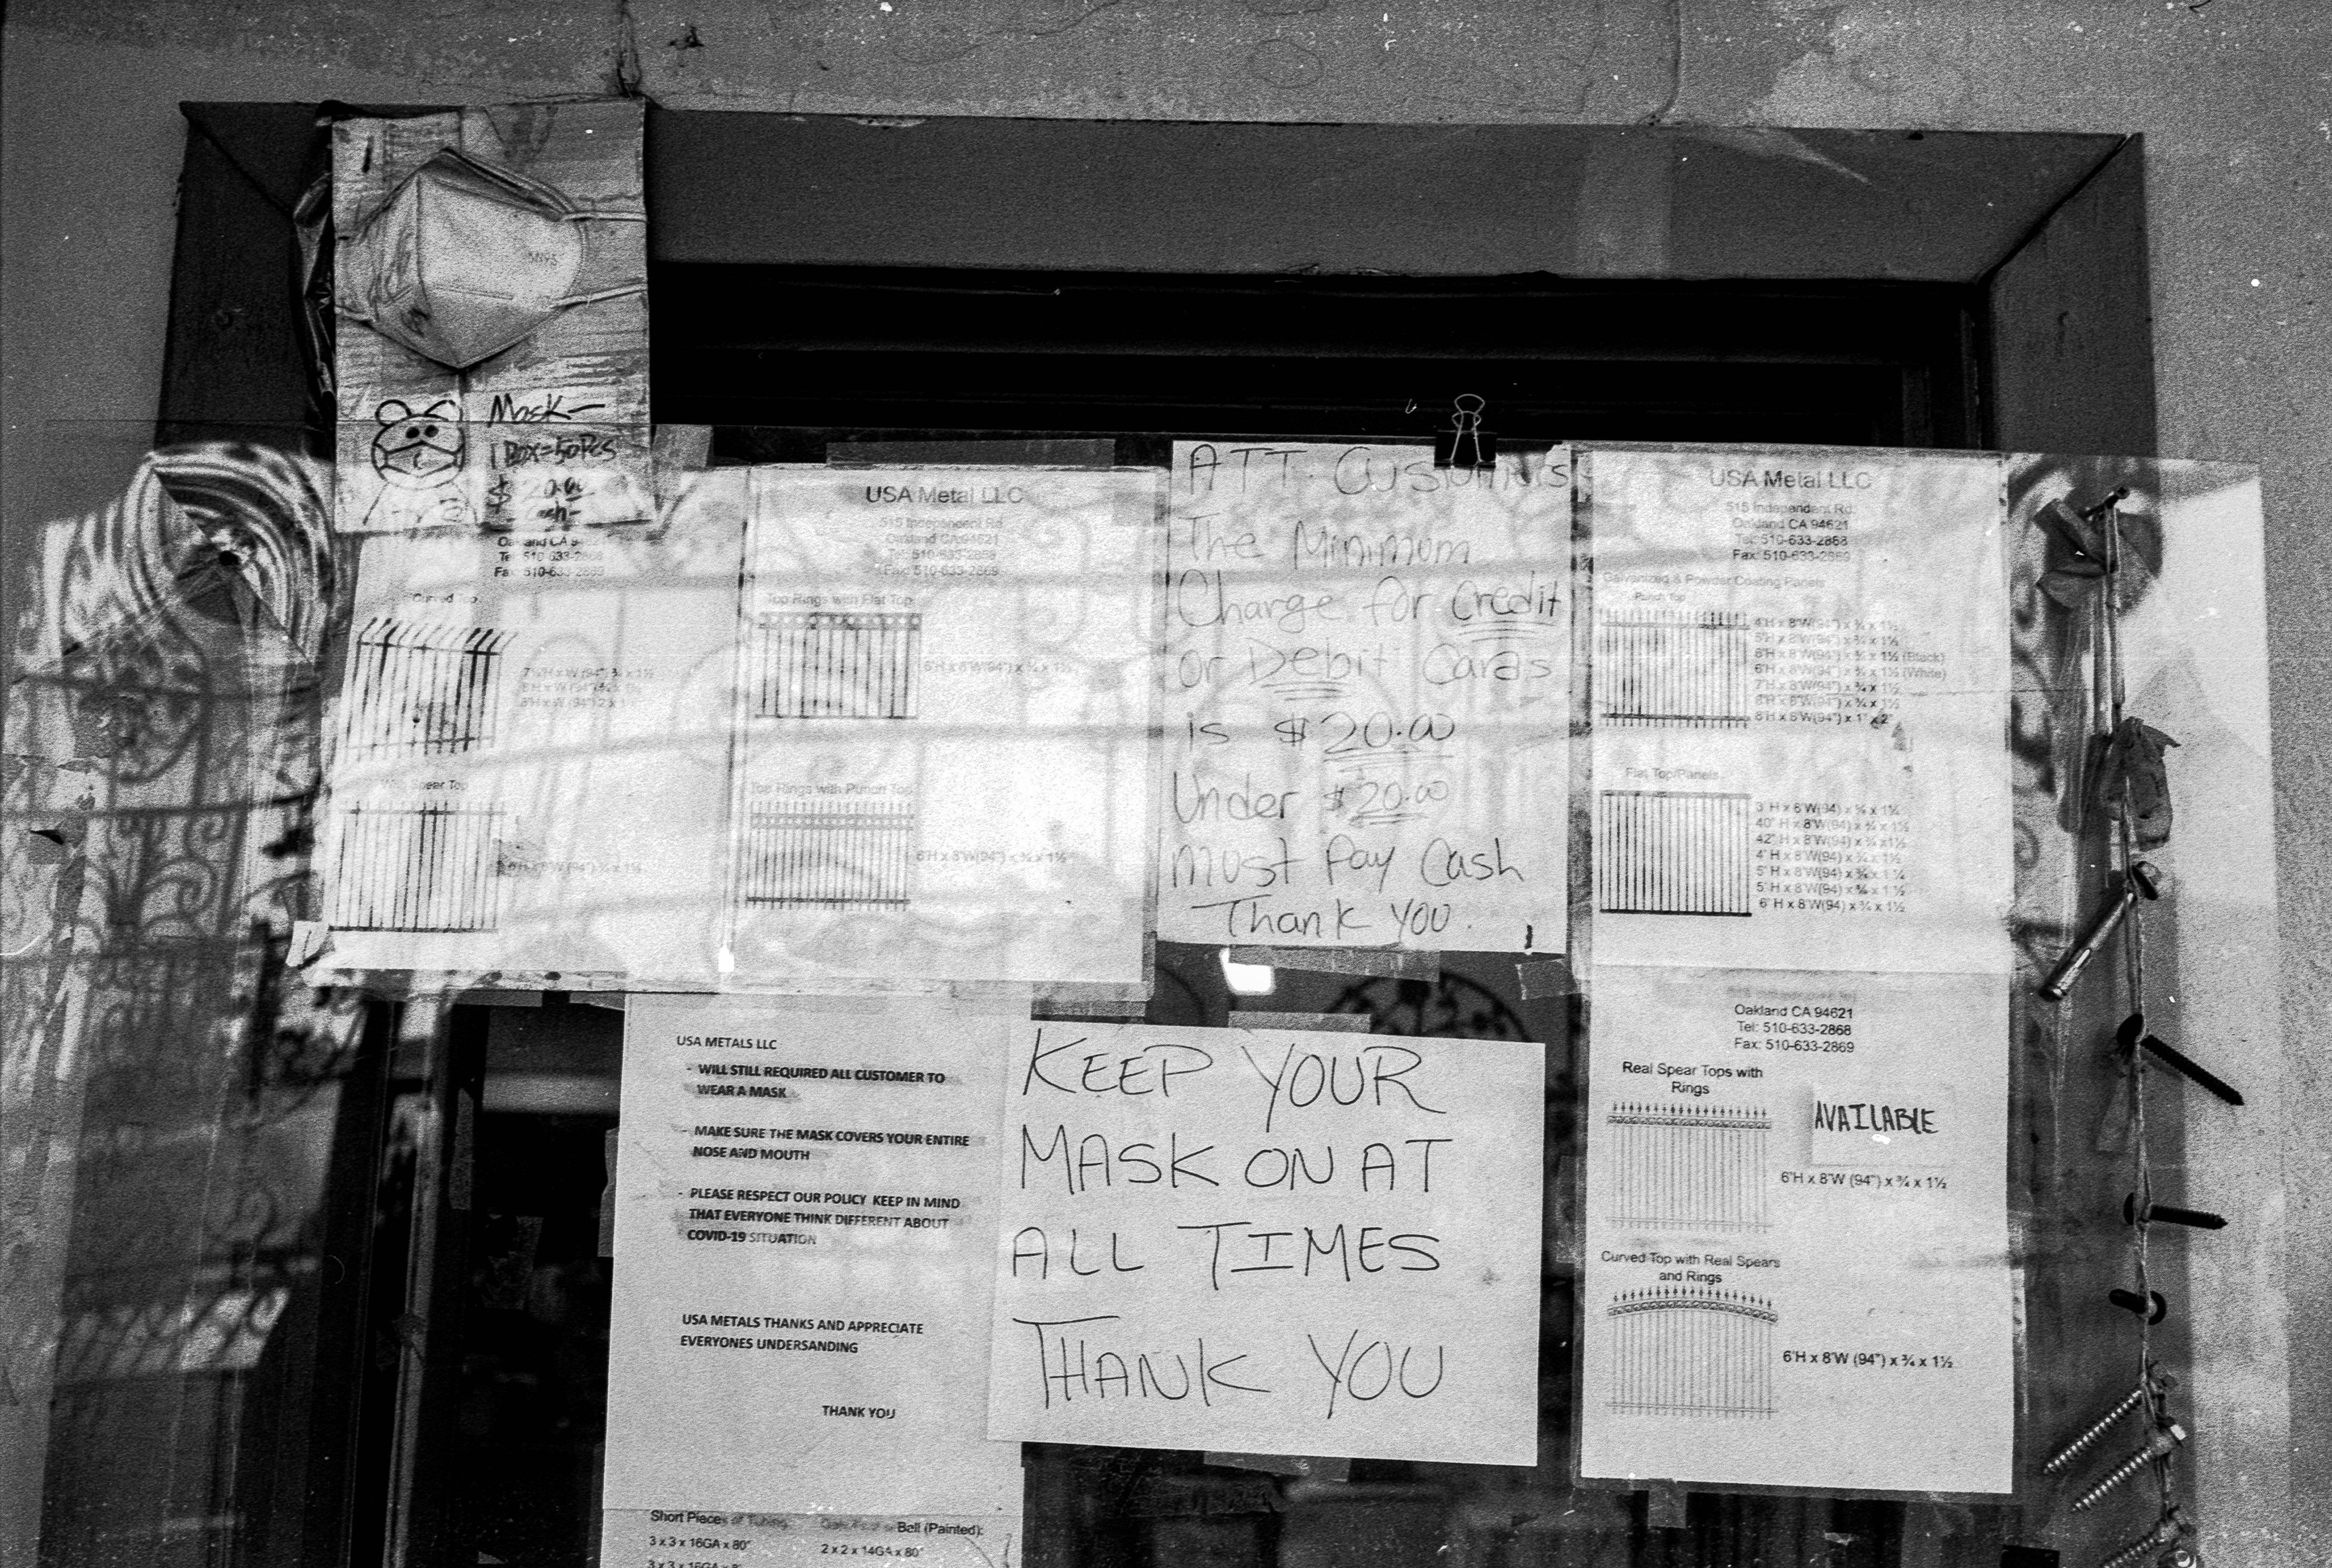 Mask-
1 BOX=50PCS
$20.00
-Cash-
Tel 510-633-2868
Fax 510-633-2869
Curved Top
Spear Top
USA Metal LLC
515 Independent Rd.
Oakland CA 94621
Tel: 510-633-2868
Fax: 510-633-2869
Top Rings with Flat Top
6'H x 8'W(94") x ¾ x 1½
Top Rings with Punch Top
6'H x 8'W(94") x ¾ x 1½
ATT: Customers
The Minimum
Charge for Credit
or Debit Cards
is $20.00
Under $20.00
must Pay Cash
Thank YOU.
USA Metal LLC
515 Independent Rd.
Oakland CA 94621
Tel: 510-633-2868
Fax: 510-633-2869
Galvanized & Powder Coating Panels
Punch Top
4'H x 8'W(94") x ¾ x 1½
5'H x 8'W(94") x ¾ x 1½
6'H x 8'W(94") x ¾ x 1½ (Black)
6'H x 8'W(94") x ¾ x 1½ (White)
7'H x 8'W(94") x ¾ x 1½
8'H x 8'W(94") x ¾ x 1½
8'H x 8'W(94") x 1" x 2"
Flat Top/Panels
3' H x 8'W(94) x ¾ x 1½
40" H x 8'W(94) x ¾ x 1½
42" H x 8'W(94) x ¾ x 1½
4' H x 8'W(94) x ¾ x 1½
5' H x 8'W(94) x ¾ x 1½
5' H x 8'W(94) x ¾ x 1½
6' H x 8'W(94) x ¾ x 1½
USA METALS LLC
- WILL STILL REQUIRED ALL CUSTOMER TO
WEAR A MASK
- MAKE SURE THE MASK COVERS YOUR ENTIRE
NOSE AND MOUTH
- PLEASE RESPECT OUR POLICY KEEP IN MIND
THAT EVERYONE THINK DIFFERENT ABOUT
COVID-19 SITUATION
USA METALS THANKS AND APPRECIATE
EVERYONES UNDERSANDING
THANK YOU
KEEP YOUR
MASK ON AT
ALL TIMES
THANK YOU
Oakland CA 94621
Tel: 510-633-2868
Fax: 510-633-2869
Real Spear Tops with
Rings
AVAILABLE
6'H x 8'W (94") x ¾ x 1½
Curved Top with Real Spears
and Rings
6'H x 8'W (94") x ¾ x 1½
Short Pieces of Tubing:
Ball (Painted):
3 x 3 x 16GA x 80"
2 x 2 x 14GA x 80"